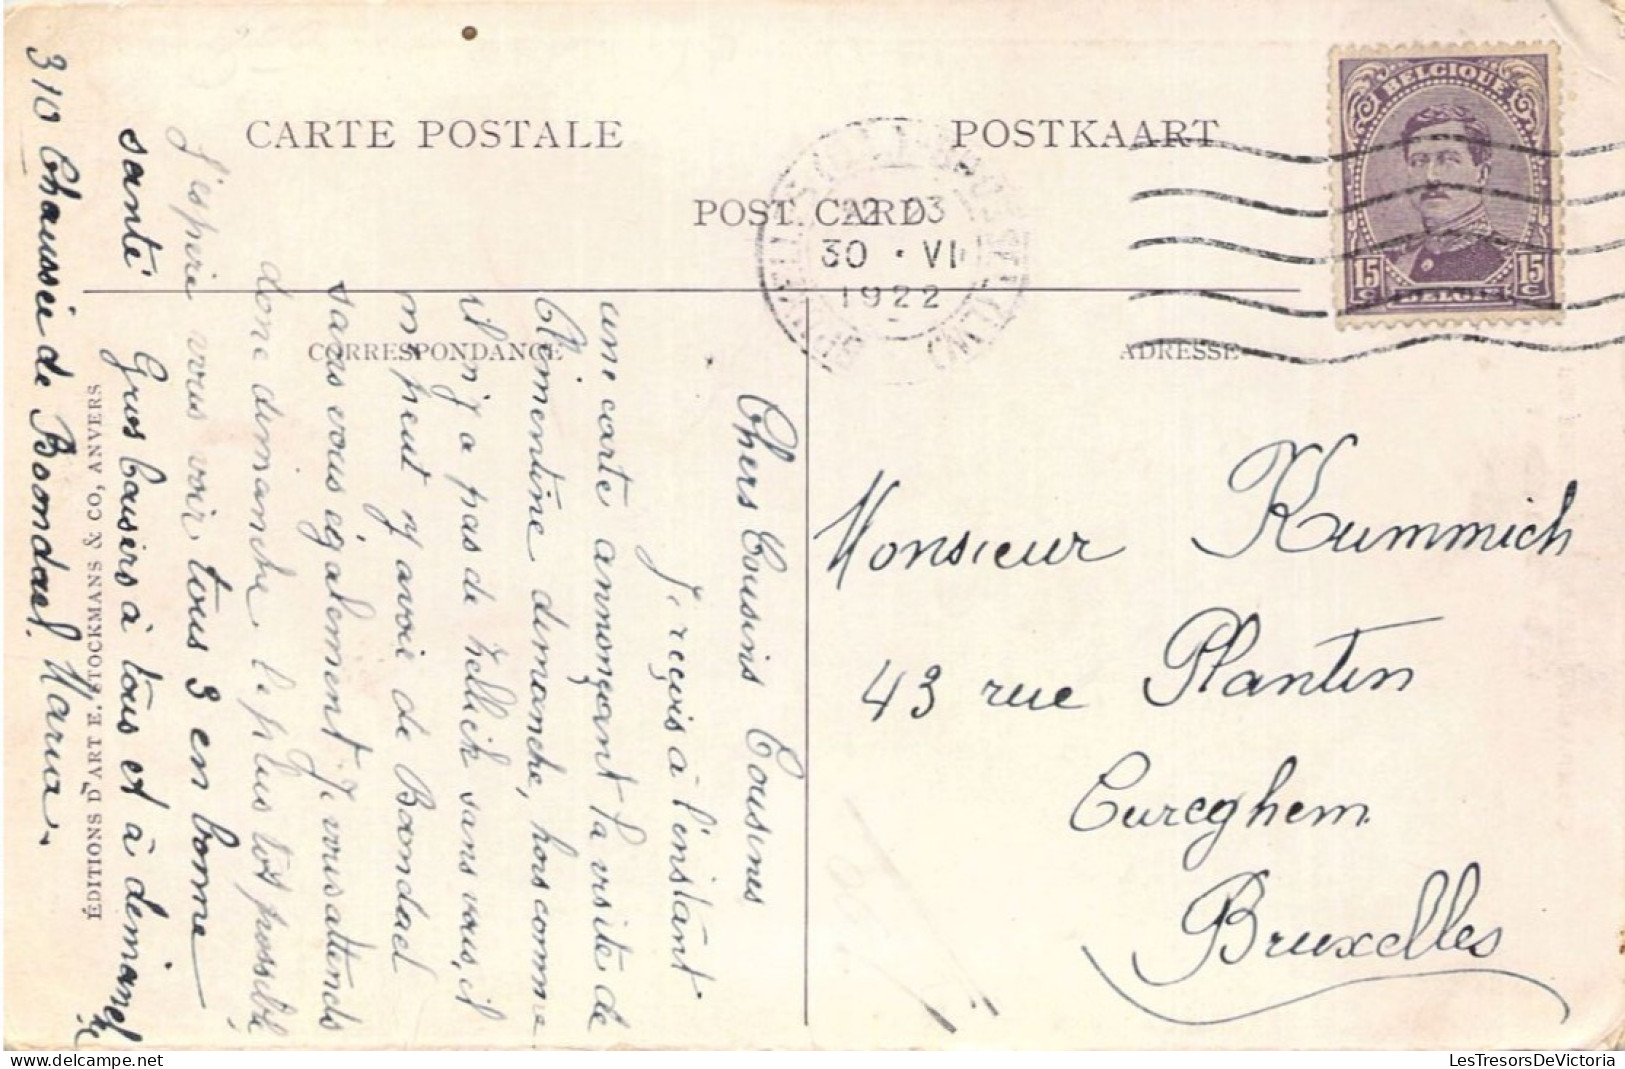 CARTE POSTALE
POSTKAART
POST CARD
22 23
30 · VI
1922
BELGIQUE
15 c
15 c
BELGIE
CORRESPONDANCE
ADRESSE
Chers Cousins Cousines
Je reçois à l'instant
une carte annonçant la visite de
Clémentine dimanche, hors comme
il n'y a pas de Zellick sans vous, il
n'peut y avoir de Boondael
sans vous également. Je vous attends
donc dimanche le plus tôt possible
J'espère vous voir tous 3 en bonne
santé Gros baisers à tous et à dimanche
Maria.
310 Chaussée de Boondael.
ÉDITIONS D'ART E. STOCKMANS & CO, ANVERS
Monsieur Kummich
43 rue Plantin
Cureghem
Bruxelles
LesTresorsDeVictoria